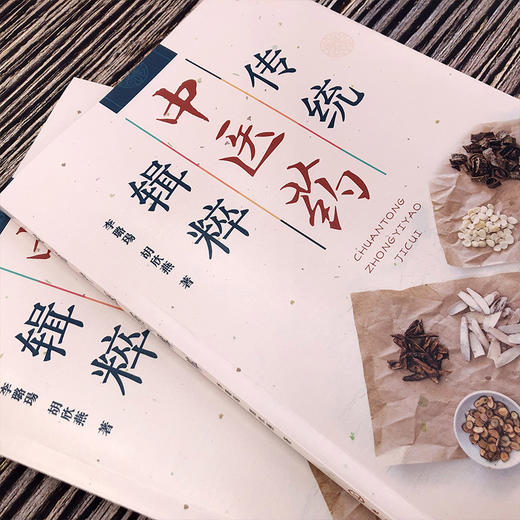 传统
中医药
辑粹
李璐瑒
胡欣燕
著
CHUANTONG
ZHONGYIYAO
JICUI
辑粹
李璐瑒
胡欣燕
著